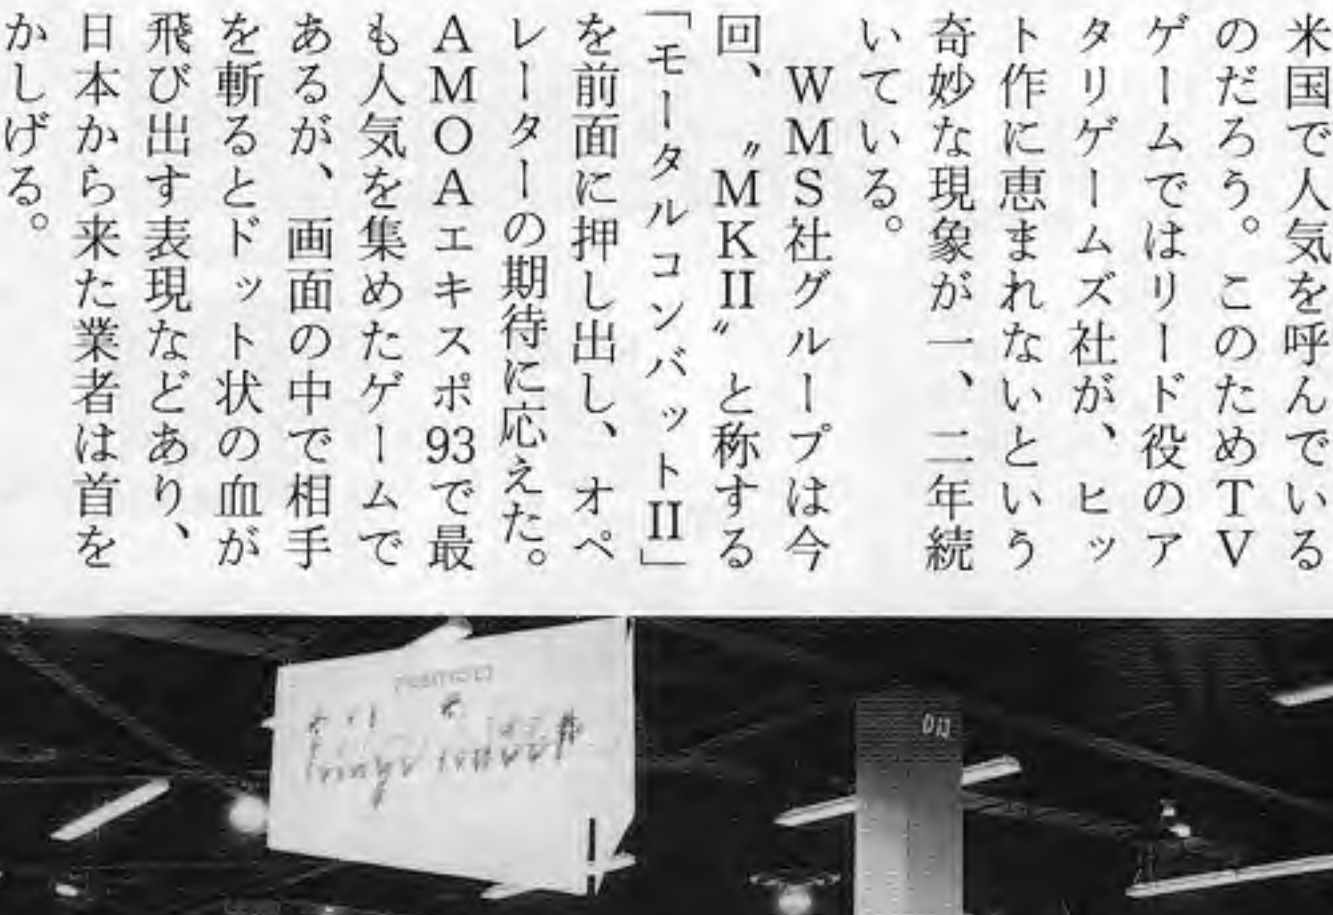 米国で人気を呼んでいる
のだろう。このためTV
ゲームではリード役のア
タリゲームズ社が、ヒッ
ト作に恵まれないという
奇妙な現象が一、二年続
いている。
WMS社グループは今
回、〝MKII〟と称する
「モータルコンバットII」
を前面に押し出し、オペ
レーターの期待に応えた。
AMOAエキスポ93で最
も人気を集めたゲームで
あるが、画面の中で相手
を斬るとドット状の血が
飛び出す表現などあり、
日本から来た業者は首を
かしげる。
namco